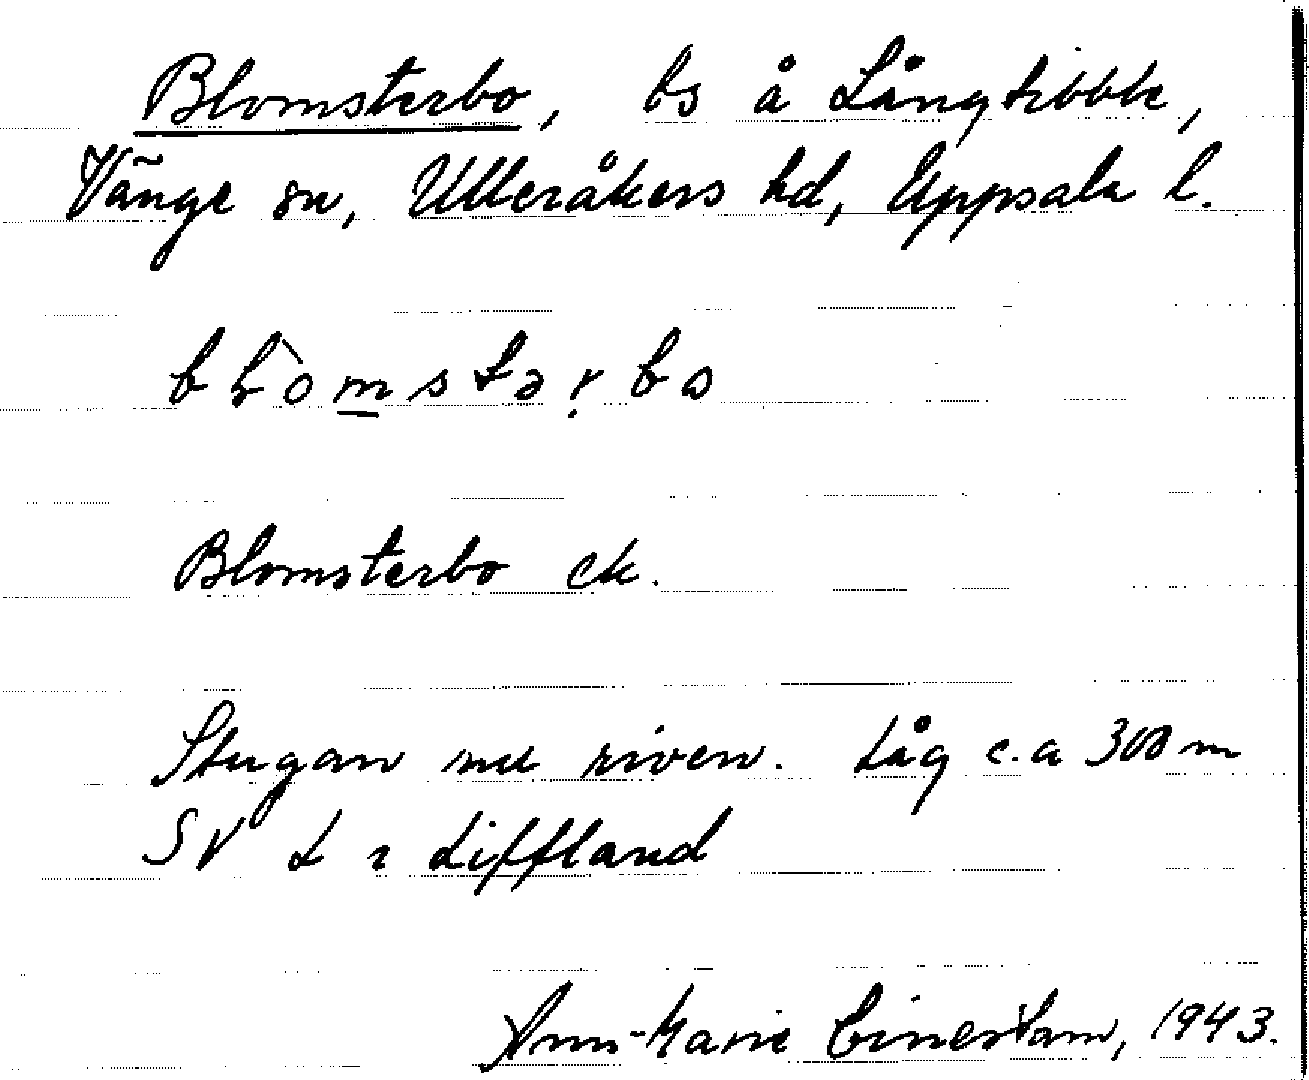 Blomsterbo, bs å Långtibble,
Vänge sn, Ulleråkers hd, Uppsala l.
blòmstərbo
Blomsterbo ek.
Stugan nu riven. Låg c.a 300 m
SV L : Liffland
Ann-Marie 1943.